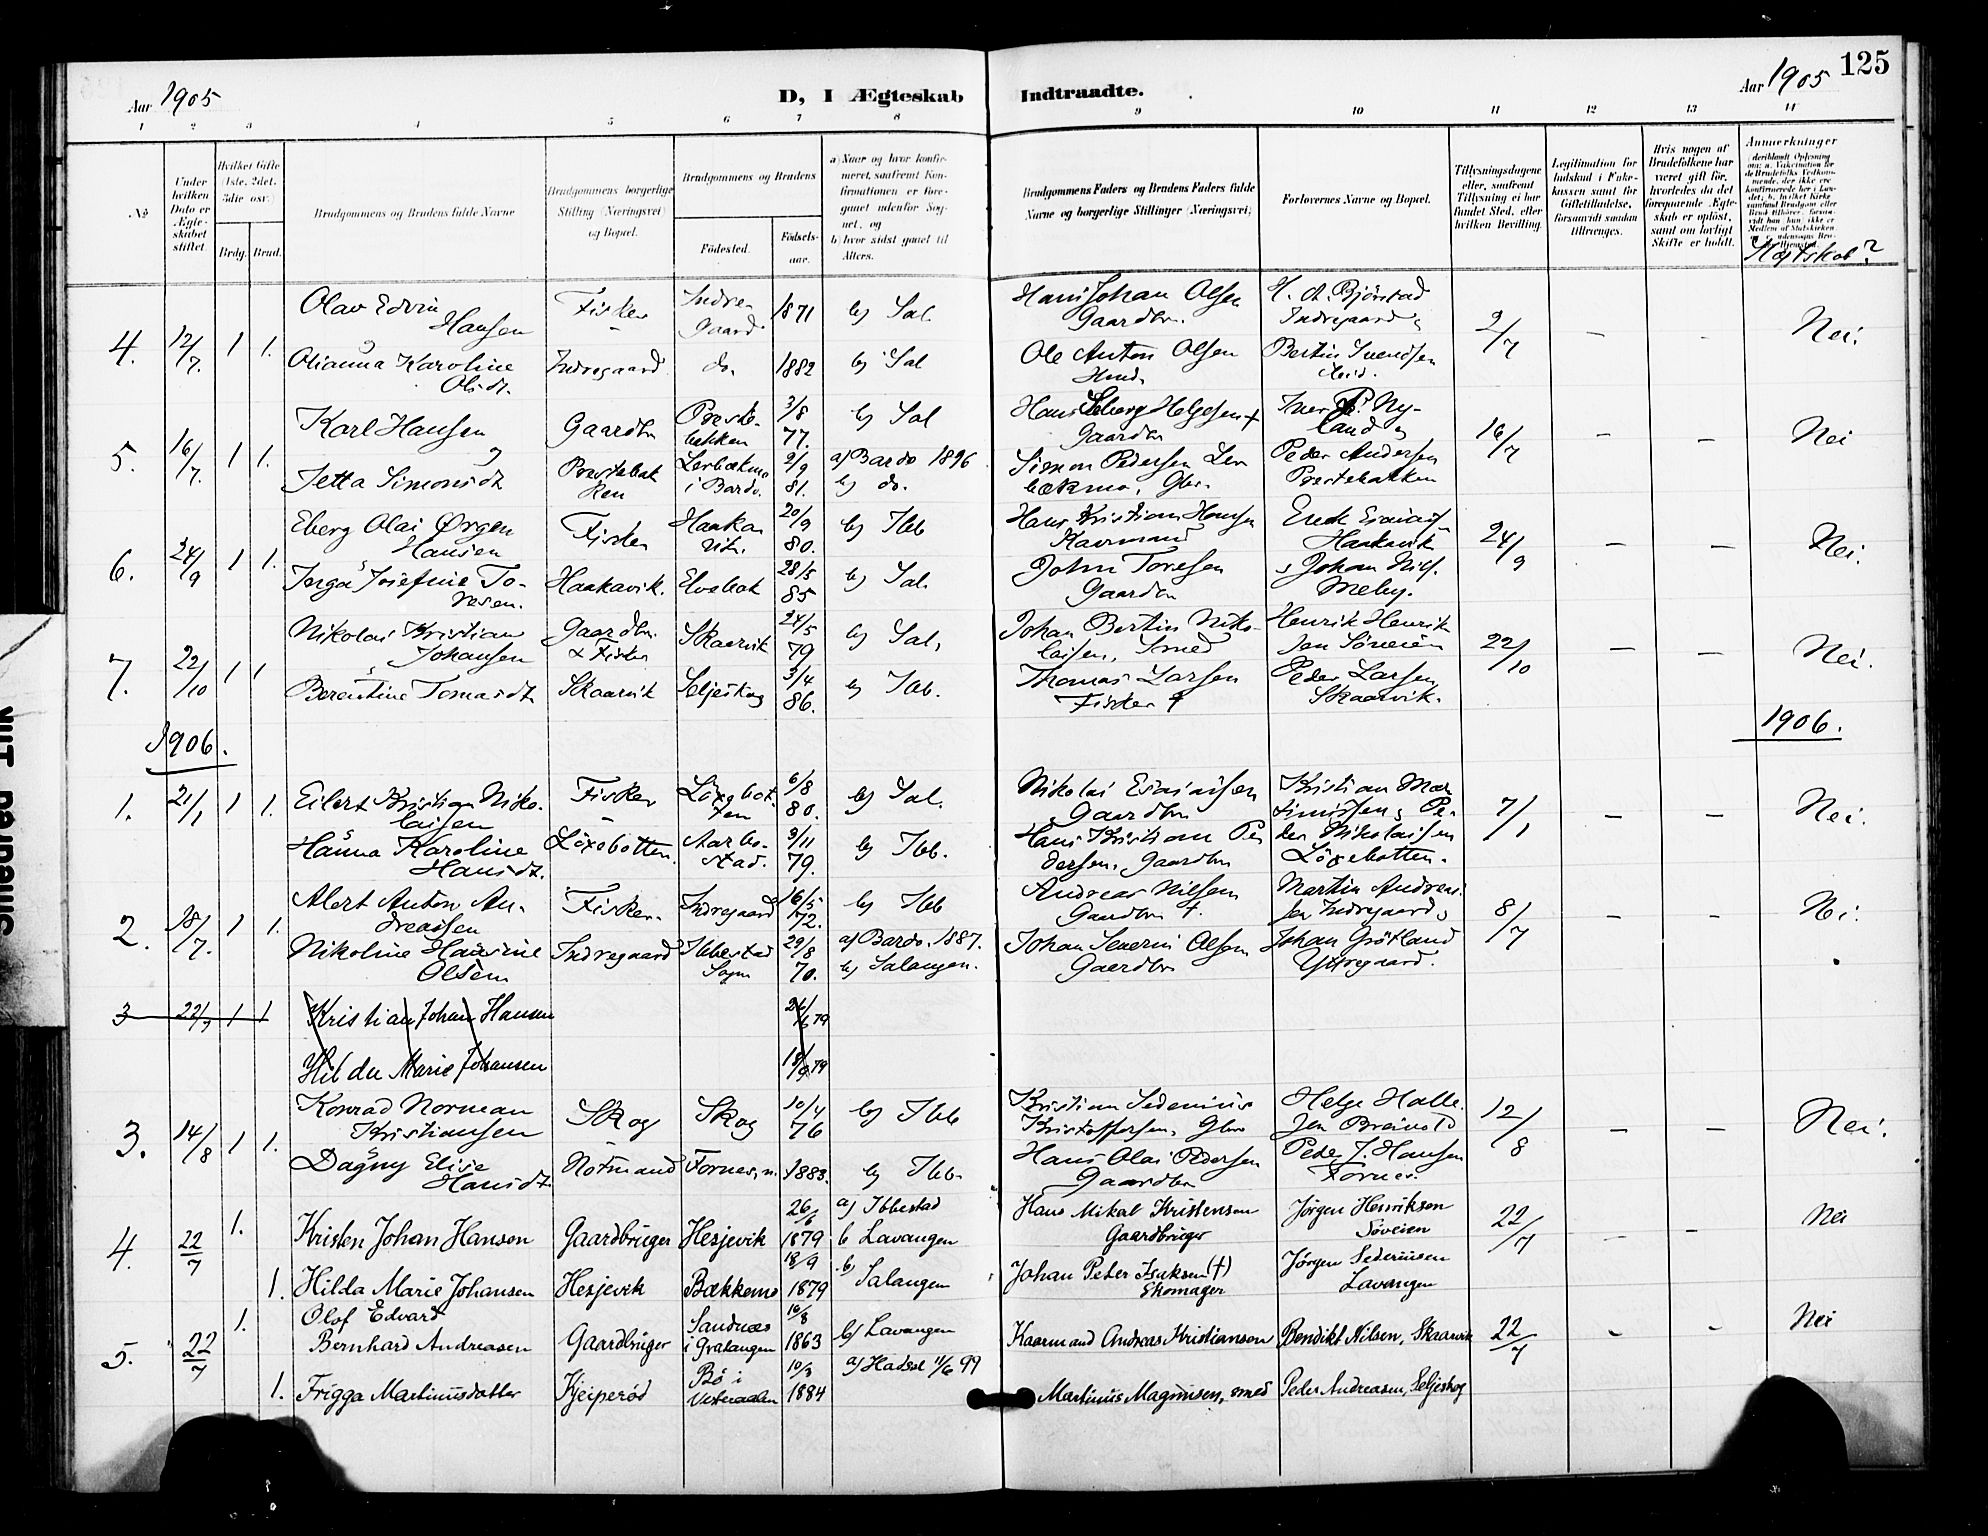 125
Aar 1905
D, I Ægteskab Indtraadte.
Aar 1905
1 2 3 4 5 6 7 8 9 10 11 12 13 14
№
Under hvilken Dato er Ægteskabet stiftet.
Hvilket Gifte (1ste, 2det, 3die osv.)
Brdg. Brud.
Brudgommens og Brudens fulde Navne
Brudgommens borgerlige Stilling (Næringsvei) og Bopæl.
Brudgommens og Brudens
Födested.
Födsels-aar.
a) Naar og hvor konfirmeret, saafremt Konfirmationen er foregaaet udenfor Sognet, og
b) hvor sidst gaaet til Alters.
Brudgommens Faders og Brudens Faders fulde Navne og borgerlige Stillinger (Næringsvei)
Forlovernes Navne og Bopæl.
Tillysningsdagene eller, saafremt Tillysning ei har fundet Sted, efter hvilken Bevilling.
Legitimation for Indskud i Enkekassen samt for Giftetilladelse, forsaavidt saadan tiltrænges.
Hvis nogen af Brudefolkene har været gift för, hvorledes da det foregaaende Ægteskab er oplöst, samt om lovligt Skifte er holdt.
Anmerkninger
Slægtskab?
4. 12/7. 1 1.
Olav Edvin Hansen
Fisker
Indregaard
1871
b) Sal.
Hans Johan Olsen
Gaardbr.
H. A. Bjørstad
Indregaard
2/7
–
Nei.
Olianna Karoline Olsdt.
Indregaard
do.
1882
b) Sal
Ole Anton Olsen
Bertin Svendsen
5. 16/7. 1 1.
Karl Hansen
Gaardbr
Prestebakken
3/8 77.
b) Sal
Hans Eberg Helgesen +
Gaardbr
Iver P. Nyland
16/7
–
–
Nei
Jetta Simonsdt
Prestebakken
Lerbækmo i Bardo.
2/9 81.
a) Bardo 1896
b) do.
Simon Pedersen Lerbækmo, Gbr.
Peder Andersen
Prestebakken
6. 24/9 1 1.
Eberg Olai Ørgen Hansen
Fisker
Haakavik.
20/9 80.
b) Ibb
Hans Kristian Hansen
Kaarmand
Haakavik
24/9
–
–
Nei.
Inga Josefine Toresen.
Haakavik.
Elvebak
28/5 85
b) Sal.
John Toresen
Gaardbr
Johan Nils.
Meby.
7. 22/10 1 1
Nikolai Kristian Johansen
Gaardbr. & Fisker
Skaarvik
24/5 79
b) Sal,
Johan Bertin Nikolaisen, Smed
Henrik Henriksen Sörveien
22/10
–
–
Nei.
Berentine Tomasdt
Skaarvik
Seljeskog
3/4 86.
b) Ibb.
Thomas Larsen
Fisker †
Peder Larsen
Skaarvik.
1906.
1906.
1. 21/1 1 1.
Eilert Kristian Nikolaisen
Fisker
Löxebotten
6/8 80.
b) Sal.
Nikolai Esaiassen
Gaardbr
Kristian Martinussen, Peder Nikolaisen
Löxebotten.
7/1
–
–
Nei.
Hanna Karoline Hansdt.
Löxebotten.
Aarbostad.
9/11 79.
b) Ibb.
Hans Kristian Pedersen, Gaardbr
2. 28/7. 1 1.
Alert Anton Andreassen
Fisker.
Indregaard
16/5 72.
b) Ibb
Andreas Nilssen
Gaardbr †.
Martin Andreassen Indregaard,
8/7
–
–
Nei.
Nikoline Hansine Olsen
Indregaard
Ibbestad Sogn
29/8 70.
a) Bardo. 1887.
b) Salangen.
Johan Severin Olsen
Gaardbr
Johan Grötland
Yttregaard.
3 22/7 1 1
Kristian Johan Hansen
26/6 79
Hilda Marie Johansen
18/9 79
3. 14/8 1 1.
Konrad Norman Kristiansen
Skog
Skog
10/4 76
b) Ibb
Kristian Sedenius Kristoffersen, Gbr
Helge Hallesen Breivold
12/8
–
–
Nei.
Dagny Elise Hansdt
Notmand
Fornes, n.
1883.
b) Ibb.
Hans Olai Pedersen
Gaardbr
Peder J. Hansen
Fornes.
4. 22/7 1.
Kristen Johan Hansen
Gaardbruger
Hesjevik
26/6 1879
a) Ibbestad
b Lavangen
Hans Mikal Kristensen
Gaardbruger
Jørgen Henriksen
Søveien
22/7
–
–
Nei
1.
Hilda Marie Johansen
Hesjevik
Bækkemo
18/9 1879
b) Salangen
Johan Peter Isaksen (†)
Skomager
Jørgen Sedeniusen
Lavangen
5. 22/7 1.
Olof Edvard Bernhard Andreasen
Gaardbruger
Sandnes i Gratangen
16/8 1863
b) Lavangen
Kaarmand Andreas Kristiansen
Bendikt Nilsen, Skaarvik
22/7
–
–
Nei
1.
Frigga Martinusdatter
Kjeiperød
Bø i Vesteraalen
10/3 1884
a) Hadsel 11/6 99
Martinus Magnusen, smed
Peder Andreasen, Seljeskog